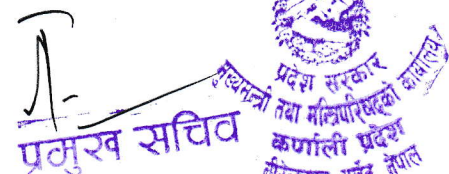 प्रमुख सचिव
प्रदेश सरकार
मुख्यमन्त्री तथा मन्त्रिपरिषद्को कार्यालय
कर्णाली प्रदेश
नेपाल